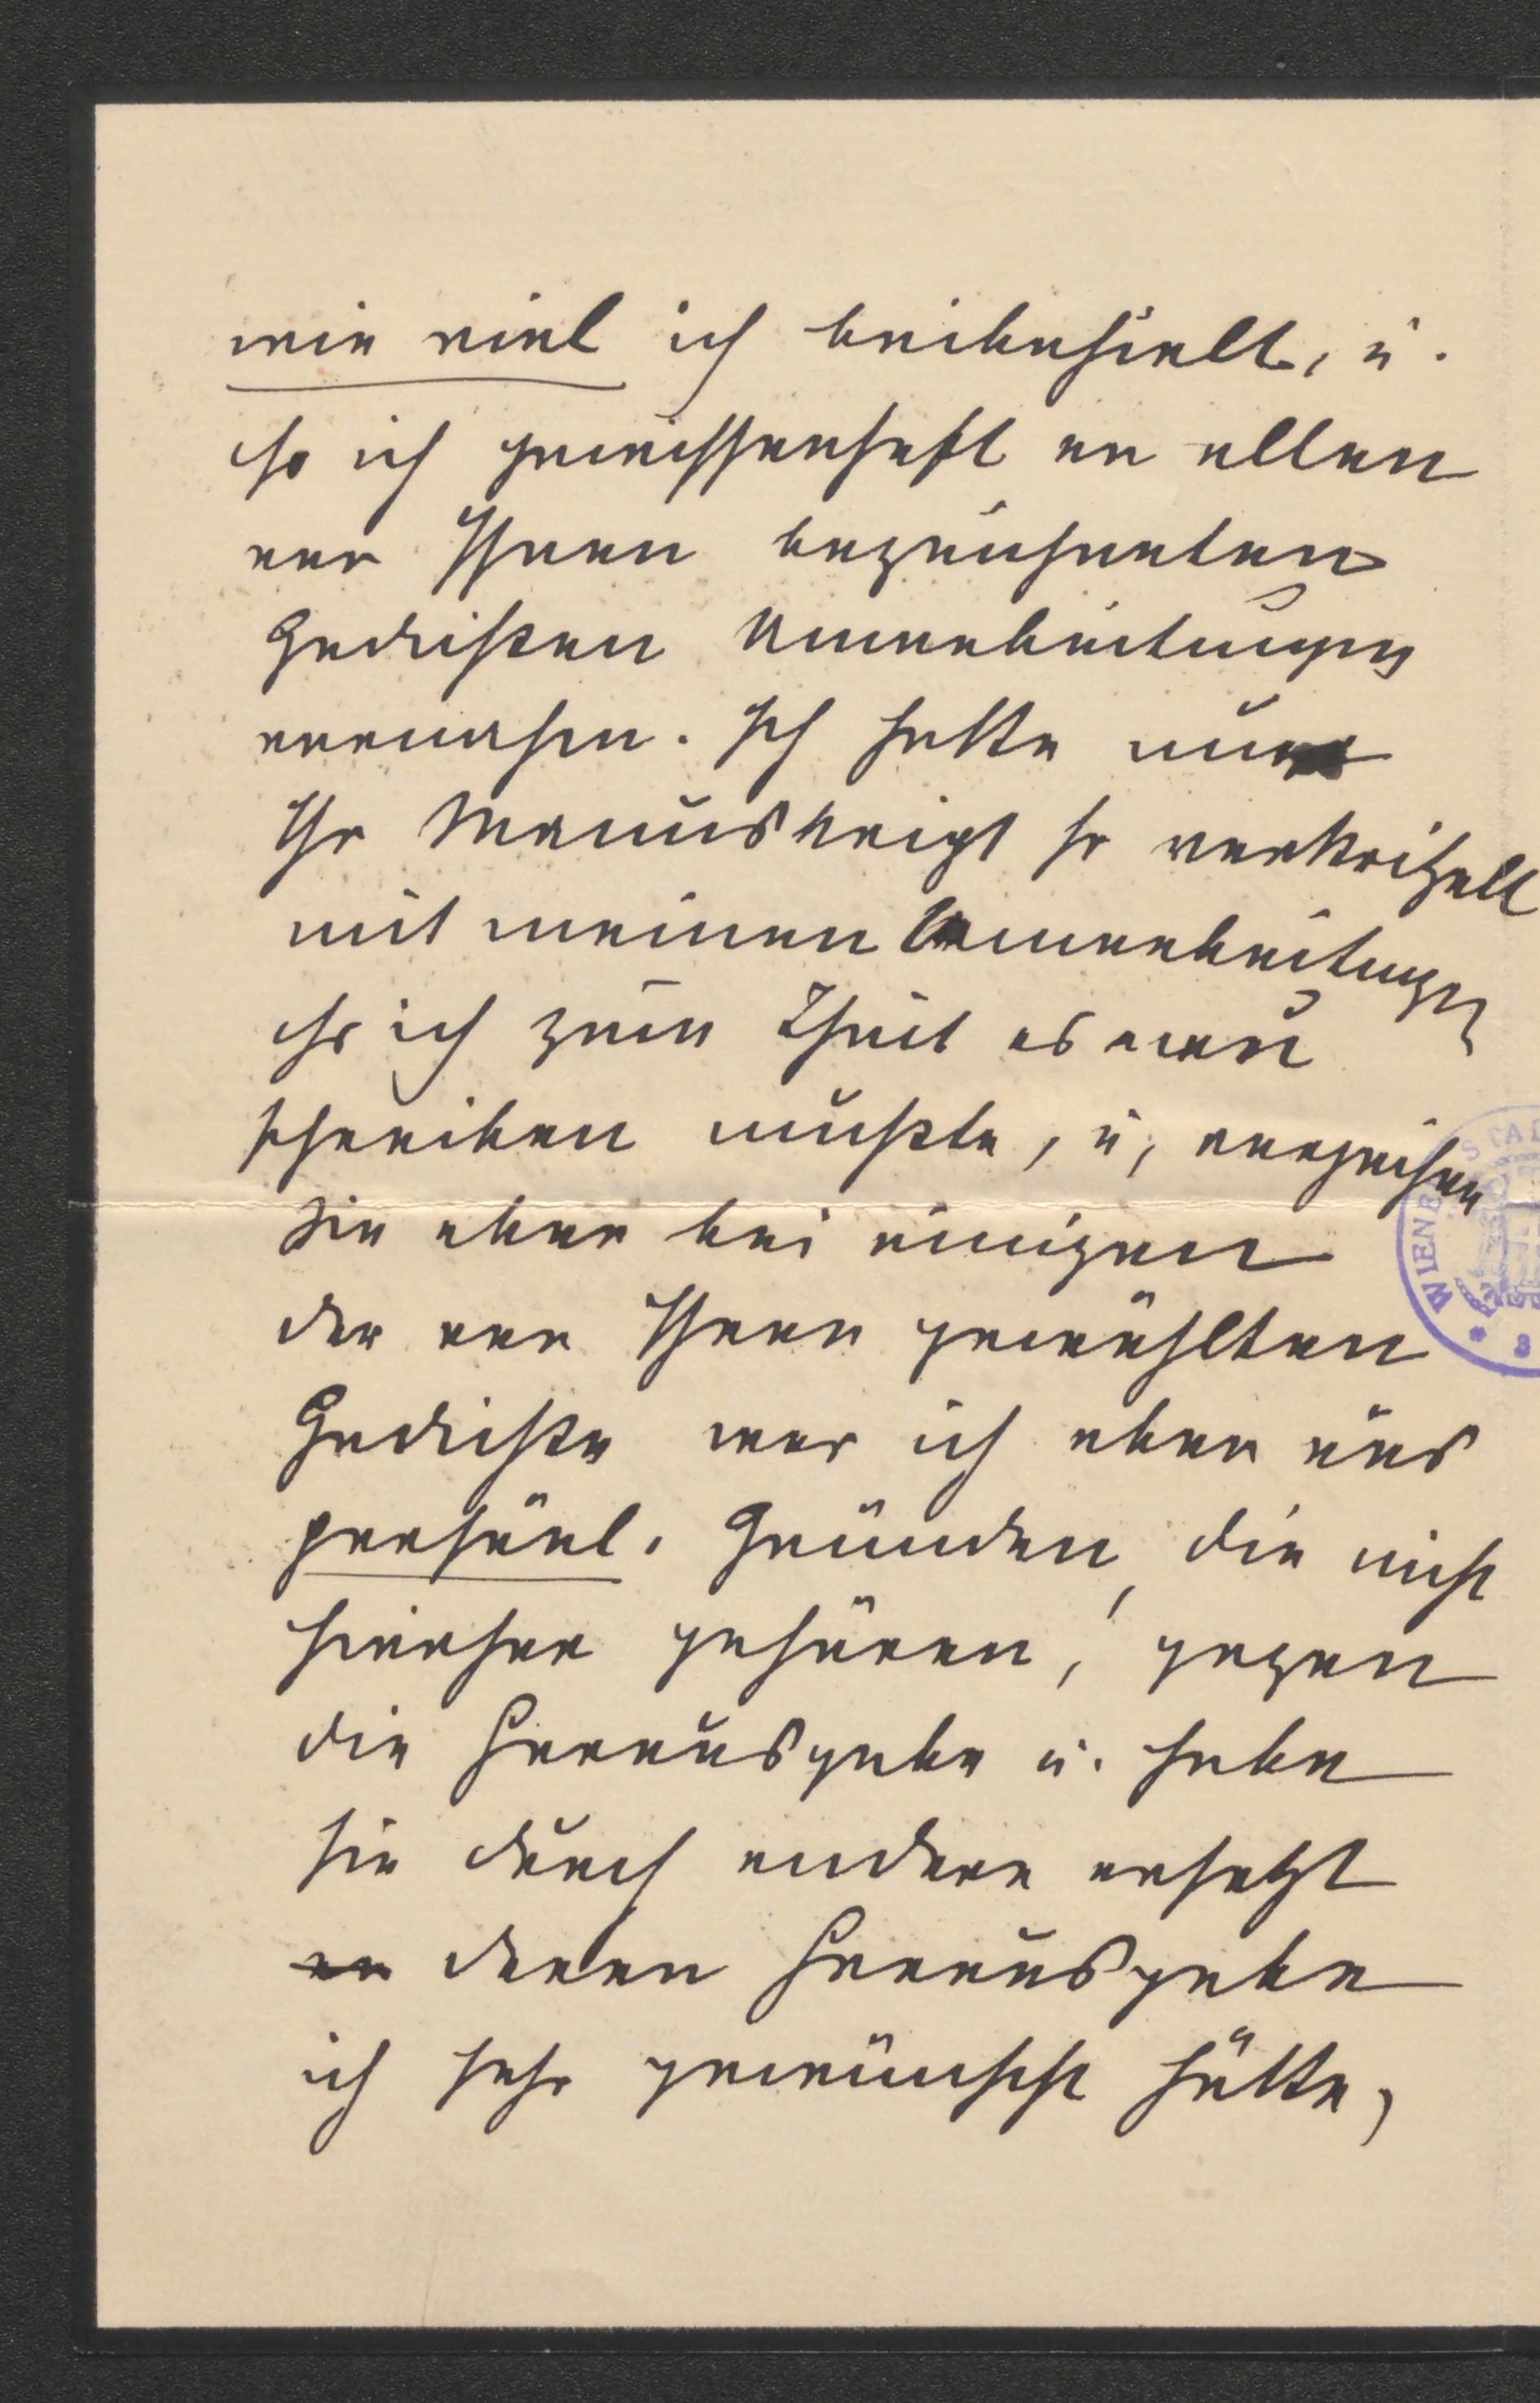 wie viel ich beibehielt, u.
ho ich gewissenhaft an allen
von Ihnen bezeichneten
Gedichten Umarbeitungen
vornahm. Ich hatte nun
Ihr Manuskript so verkritzelt
mit meinen Umarbeitungen
das ich zum Theil es neu
schreiben mußte, u, verzeihen
Sie aber bei einigen
der von Ihnen gewählten
Gedichte war ich eben aus
persönl. Gründen, die nicht
hierher gehören, gegen
die Herausgabe u. habe
sie durch andere ersetzt
an deren Herausgabe
ich sehr gewünscht hätte,
WIENER STAD